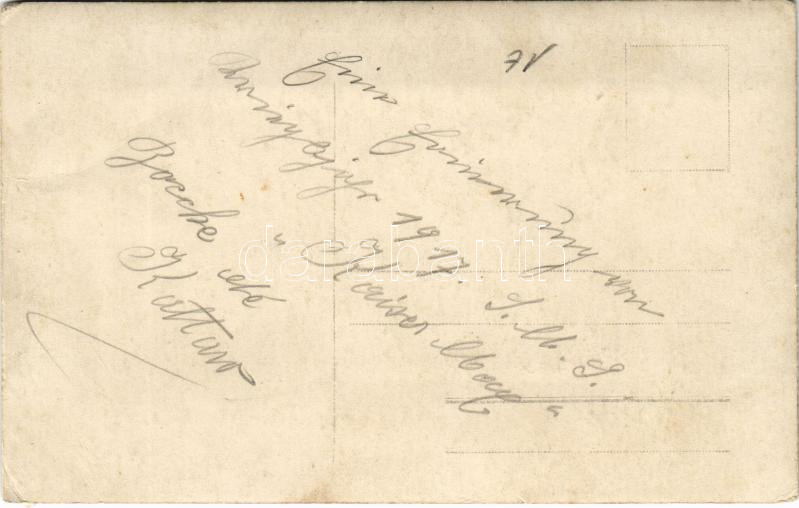 Eine Erinnerung von
Kriegsjahr 1917. S.M.S.
"Kaiser Max"
Bocche di
Kattaro
darabanth